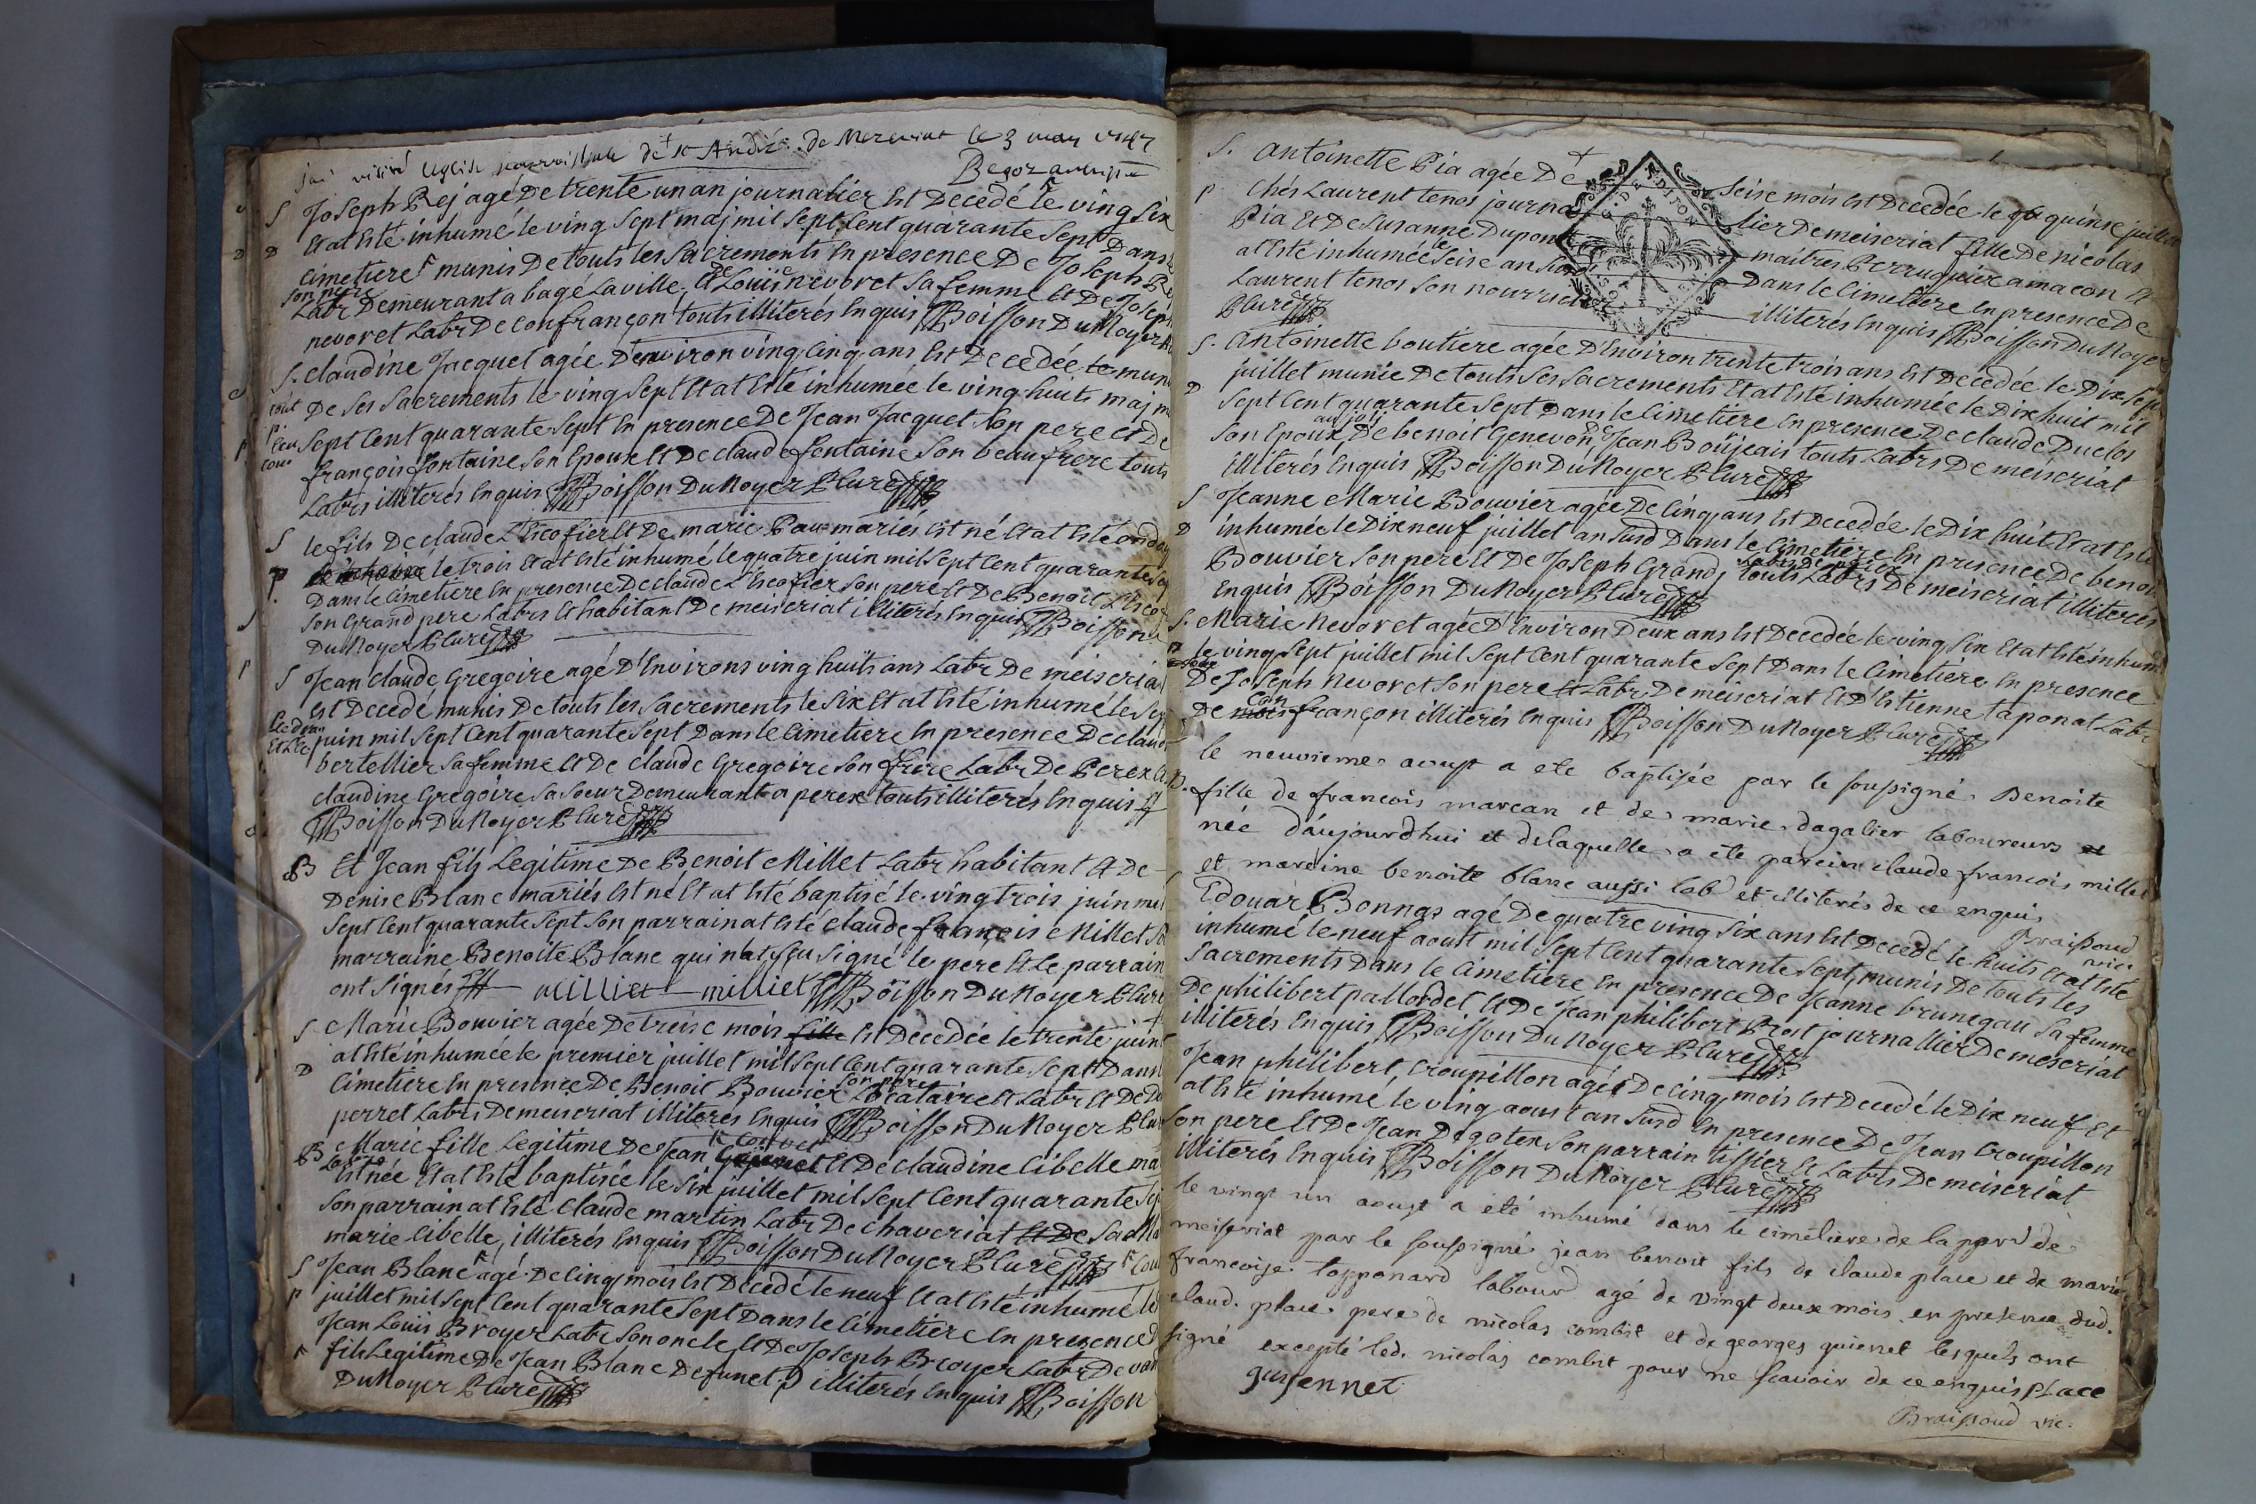 visité leglise parroissiale de st André de Mezeriat le 3 may 1747
S Joseph Rej agé De trente un an journalier Est Decedé le ving six
Et at Esté inhumé le ving sept maj mil sept Cent quarante sept Dans
Cimetiere munis De touts les sacrements En presence De Joseph
son pere
Labr Demeurant a bage la ville, Et De Loüis nevoret sa femme Et De Joseph
nevoret Labr De confrançon touts illiterés Enquis Boisson Du Noyer
S. claudine Jacquet agée D'environ ving cinq ans Est Decedée
De ses sacrements le ving sept Et at Esté inhumée le ving huits maj
sept Cent quarante sept En presence De Jean Jacquet son pere Et De
françois fontaine son Epoux Et De claude fontaine son beaufrere touts
Labrs illiterés Enquis Boisson Du Noyer P Curé
S le fils De claude L'Escofier Et De marie mariés Est né Et at Esté
p. le trois Et at Esté inhumé le quatre juin mil sept Cent quarante
Dans le Cimetiere En presence De claude L'Escofier son pere Et De Benoit
son grand pere Labrs Et habitant De meiseriat illiterés Enquis Boisson
Du Noyer P Curé
S Jean claude Gregoire agé D'Environs ving huits ans Labr De meiseriat
Est Decedé munis De touts les sacrements le six Et at Esté inhumé le
juin mil sept Cent quarante sept Dans le Cimetiere En presence De
bertellier sa femme Et De claude Gregoire son frere Labr De Perex Et
claudine Gregoire sa soeur Demeurant a perex touts illiterés Enquis
Boisson Du Noyer P Curé
B Et Jean fils Legitime De Benoit Millet Labr habitant Et De
Denise Blanc mariés Est né Et at Esté baptisé le ving trois juin mil
sept Cent quarante sept son parrain at Esté claude françois Millet
marraine Benoite Blanc qui n'at sçu signé le pere Et le parrain
ont signés milliet milliet Boisson Du Noyer P Curé
S. Marie Bouvier agée De treise mois Est Decedée le trente juin
D at Esté inhumée le premier juillet mil sept Cent quarante sept Dans
son pere
Cimetiere En presence De Benoit Bouvier Locataire Et Labr Et De
perret Labrs De meiseriat illiterés Enquis Boisson Du Noyer P
B Marie fille Legitime De Jean Et De claudine Cibelle
Est née Et at Esté baptisée le six juillet mil sept Cent quarante
son parrain at Esté claude martin Labr De chaveriat
marie Cibelle, illiterés Enquis Boisson Du Noyer P Curé
S Jean Blanc agé De Cinq mois Est Decedé le neuf Et at Esté inhumé le
p juillet mil sept Cent quarante sept Dans le Cimetiere En presence
Jean Louis Broyer Labr son oncle Et De Joseph Broyer Labr De
fils Legitime De Jean Blanc Defunct illiterés Enquis Boisson
Du Noyer P Curé
S. Antoinette Pia agée De seise mois Est Decedée le quinse juillet
p chés Laurent tenos journalier De meiseriat fille De nicolas
Pia Et De Susanne Dupont maitres Perruquier a macon Et
at Esté inhumée le seise an susd Dans le Cimetiere En presence De
Laurent tenos son nourricier illiterés Enquis Boisson Du Noyer
P Curé
S. Antoinette boutiere agée D'Environ trente trois ans Est Decedée le Dix sept
D juillet munie De touts ses sacrements Et at Esté inhumée le Dix huit mil
sept Cent quarante sept Dans le Cimetiere En presence De claude Duclos
son Epoux De benoit Genevon, Jean Boüjeais touts Labrs De meiseriat
illiterés Enquis Boisson Du Noyer P Curé
S Jeanne Marie Bouvier agée De Cinq ans Est Decedée le Dix huit Et at Esté
D inhumée le Dix neuf juillet an susd Dans le Cimetiere En presence De benoit
Bouvier son pere Et De Joseph Grand, touts Labrs De meiseriat illiterés
Enquis Boisson Du Noyer P Curé
S. Marie Nevoret agée D'Environ Deux ans Est Decedée le ving six Et at Esté inhumée
le ving sept juillet mil sept Cent quarante sept Dans le Cimetiere En presence
De Joseph Nevoret son pere Labr De meiseriat Et D'Estienne taponat Labr
De Confrançon illiterés Enquis Boisson Du Noyer P Curé
le neuvieme aoust a ete baptisée par le soussigné Benoite
B. fille de francois marcan et de marie dagalier laboureurs
née d'aujourdhui et delaquelle a ete parein claude francois millet
et mareine benoite blanc aussi labr et illiterés de ce enquis
Braissoud vic.
Edouar Bonnas agé De quatre ving six ans Est Decedé le huits Et at Esté
inhumé le neuf aoust mil sept Cent quarante sept munis De touts les
sacrements Dans le Cimetiere En presence De Jeanne brunegau sa femme
De philibert Et De Jean philibert Prost journallier De meseriat
illiterés Enquis Boisson Du Noyer P Curé
Jean philibert, Croupillon agé De Cinq mois Est Decedé le Dix neuf Et
at Esté inhumé le ving aoust an susd En presence De Jean Croupillon
son pere Et De Jean son parrain tissier Et Labrs De meiseriat
illiterés Enquis Boisson Du Noyer P Curé
le vingt un aoust a eté inhumé dans le cimetiere de la parr de
meisseriat par le soussigné jean benoit fils de claude place et de marie
francoise tapponard labour agé de vingt deux mois en presence dud.
claud. place pere de nicolas combet et de georges quienet lesquels ont
signé excepté led. nicolas combet pour ne scavoir de ce enquis place
guyennet
Braissoud vic.